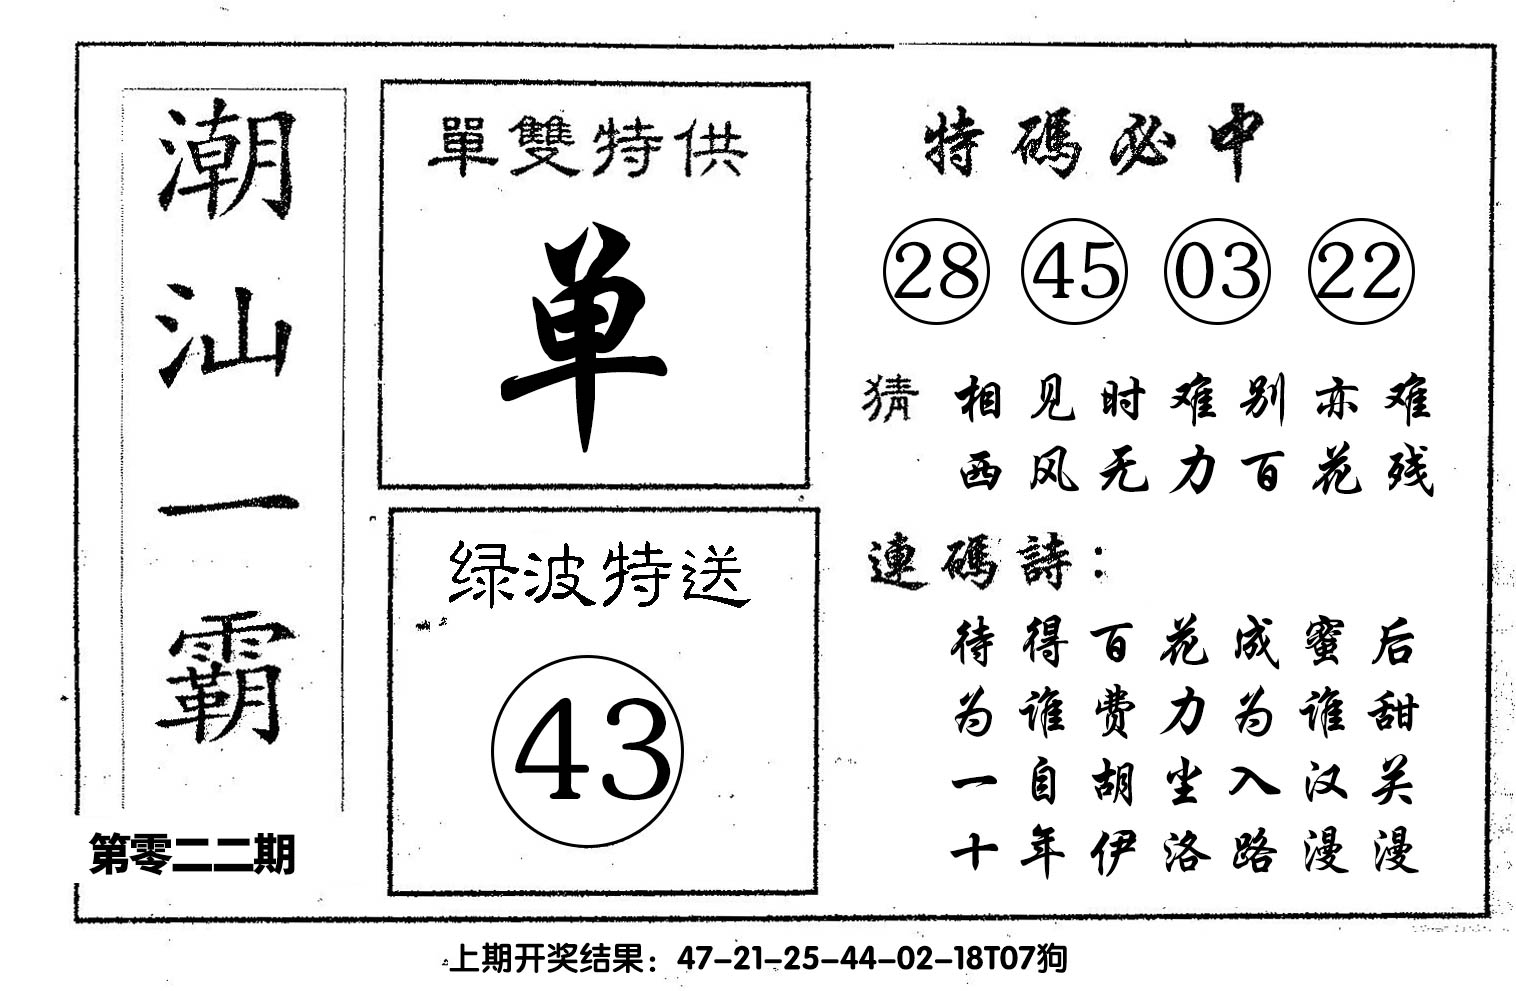 潮汕一霸
第零二二期
單雙特供
单
绿波特送
43
特碼必中
28 45 03 22
猜 相见时难别亦难
西风无力百花残
連碼詩：
待得百花成蜜后
为谁费力为谁甜
一自胡尘入汉关
十年伊洛路漫漫
上期开奖结果：47-21-25-44-02-18T07狗